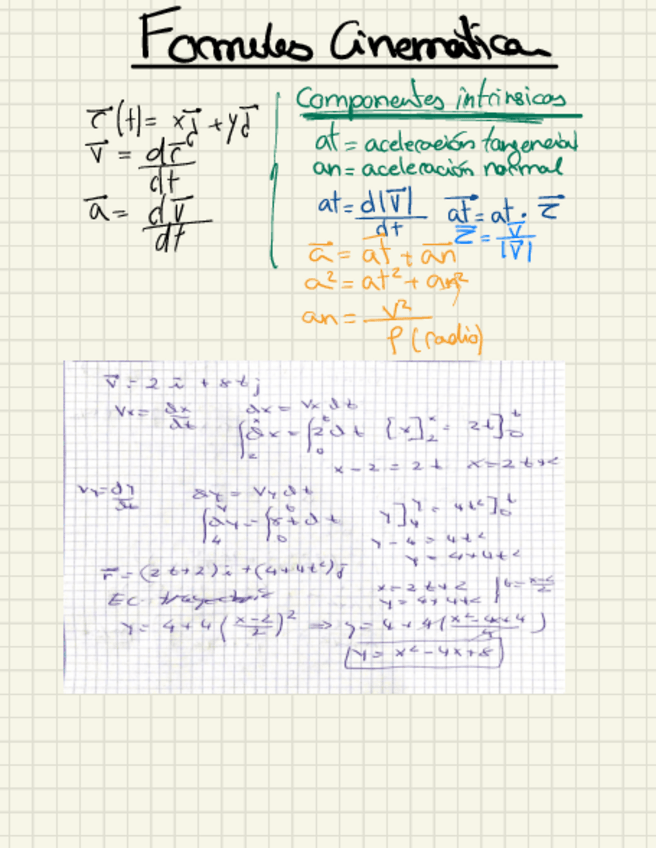 Formules Cinemática
r⃗(t) = xi⃗ + yj⃗
v⃗ = dr⃗/dt
a⃗ = dv⃗/dt
Componentes intrinsicos
at = aceleración tangencial
an = aceleración normal
at = d|v⃗|/dt  a⃗t = at · τ⃗
τ⃗ = v⃗/|v⃗|
a⃗ = a⃗t + a⃗n
a² = at² + an²
an = v²/ρ (radio)
v⃗ = 2 i + 8t j
Vx = dx/dt  dx = Vx dt
∫₂ˣ dx = ∫₀ᵗ 2 dt  [x]₂ˣ = 2t]₀ᵗ
x - 2 = 2t  x = 2t + 2
Vy = dy/dt  dy = Vy dt
∫₄ʸ dy = ∫₀ᵗ 8t dt  y]₄ʸ = 4t²]₀ᵗ
y - 4 = 4t²
y = 4 + 4t²
r⃗ = (2t+2) i + (4+4t²) j
Ec. trayectoria
x = 2t + 2
y = 4 + 4t²  t = x-2/2
y = 4 + 4 (x-2/2)² ⇒ y = 4 + 4 (x² - 4x + 4/4)
y = x² - 4x + 8